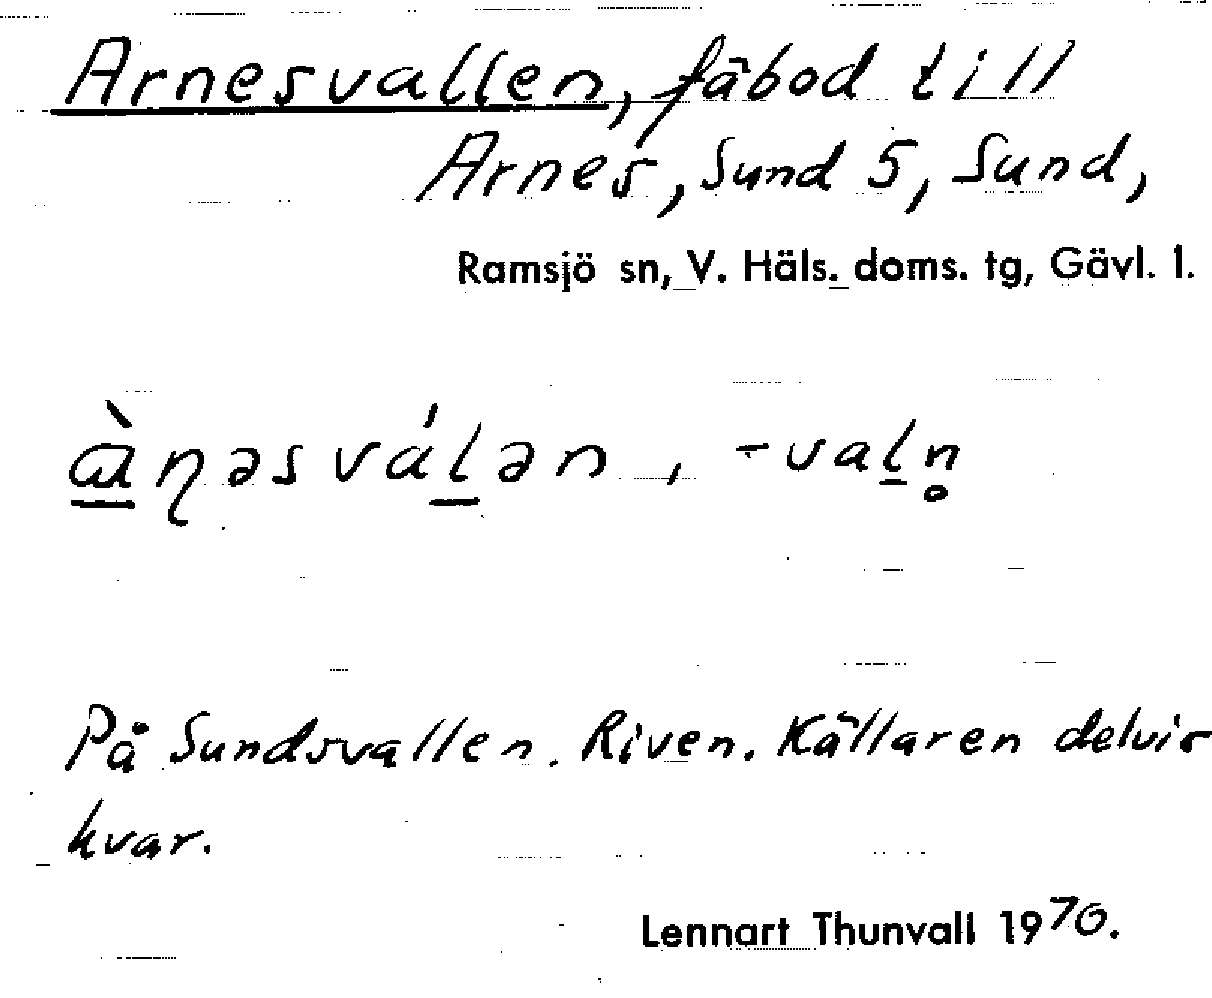 Arnesvallen, fäbod till
Arnes, Sund 5, Sund,
Ramsjö sn, V. Häls. doms. tg, Gävl. l.
à̱ɳəsváḻən, -vaḻn̥
På Sundsvallen. Riven. Källaren delvis
kvar.
Lennart Thunvall 1970.